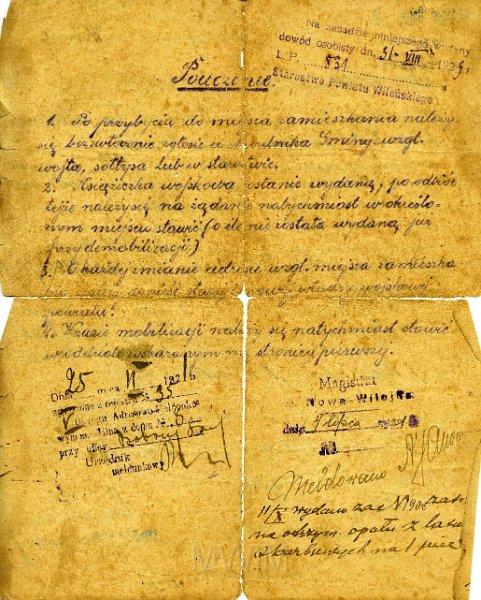 Na zasadzie niniejszego wydany
dowód osobisty dn. 31-VIII 192
L. P. 831
Starostwo Powiatu Wileńskiego
Pouczenie
1. Po przybyciu do miejsca zamieszkania należy
się bezzwłocznie zgłosić u Urzędnika Gminy, wzgl.
wójta, sołtysa lub w starostwie.
2. Książeczka wojskowa zostanie wydaną, po odbiór
tejże należy się na żądanie natychmiast w określo-
nym miejscu stawić (o ile nie została wydaną już
przy demobilizacji)
3. O każdej zmianie adresu wzgl. miejsca zamieszka
powiatu.
4. W razie mobilizacji należy się natychmiast stawić
w oddziale wskazanym na stronicy pierwszej.
Dnia 25 m-ca II 192
35
V
z domu № 8
przy ulicy
Urzędnik
meldunkowy
Magistrat
m. Nowa Wilejka
dnia 9 lipca 192
№
Meldowano
11/X wydano zaś № 906
na otrzym. opału z lasu
skarbowych na 1 piec
MWM